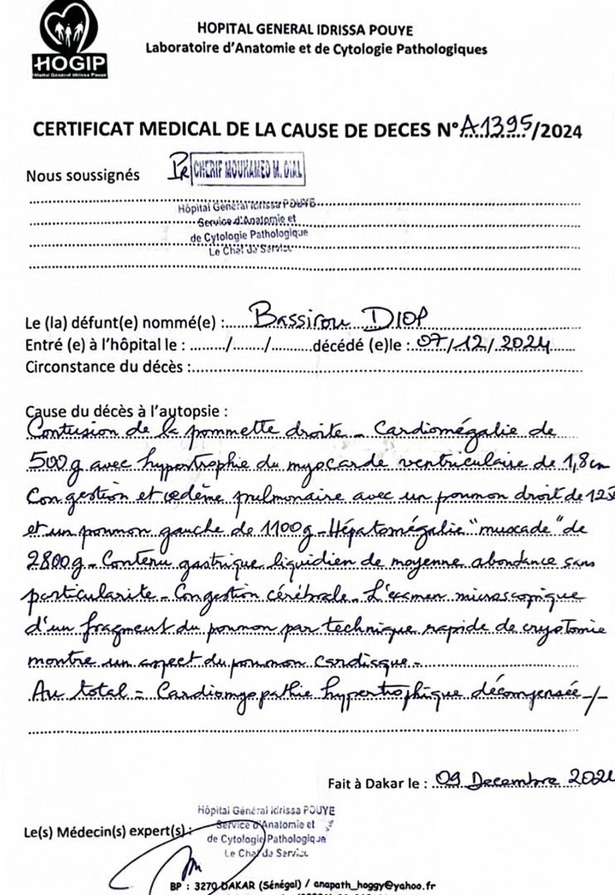 HOGIP
Hôpital Général Idrissa Pouye
HOPITAL GENERAL IDRISSA POUYE
Laboratoire d'Anatomie et de Cytologie Pathologiques
CERTIFICAT MEDICAL DE LA CAUSE DE DECES N° A1395/2024
Nous soussignés Pr CHERIF MOUHAMED M. DIAL
Hôpital Général Idrissa POUYE
Service d'Anatomie et
de Cytologie Pathologique
Le Chef de Service
Le (la) défunt(e) nommé(e) : Bassirou DIOP
Entré (e) à l'hôpital le : ......../......./..........décédé (e)le : 07/12/2024
Circonstance du décès :
Cause du décès à l'autopsie :
Contusion de la pommette droite - Cardiomégalie de
500g avec hypertrophie du myocarde ventriculaire de 1,8cm
Congestion et œdème pulmonaire avec un poumon droit de 125
et un poumon gauche de 1100g - Hépatomégalie "muscade" de
2800g - Contenu gastrique liquidien de moyenne abondance sans
particularité - Congestion cérébrale - L'examen microscopique
d'un fragment du poumon par technique rapide de cryotomie
montre un aspect du poumon cardiaque -
Au total = Cardiomyopathie hypertrophique décompensée -/-
Fait à Dakar le : 09 Decembre 202
Hôpital Général Idrissa POUYE
Service d'Anatomie et
de Cytologie Pathologique
Le Chef de Service
Le(s) Médecin(s) expert(s) :
BP : 3270 DAKAR (Sénégal) / anapath_hoggy@yahoo.fr